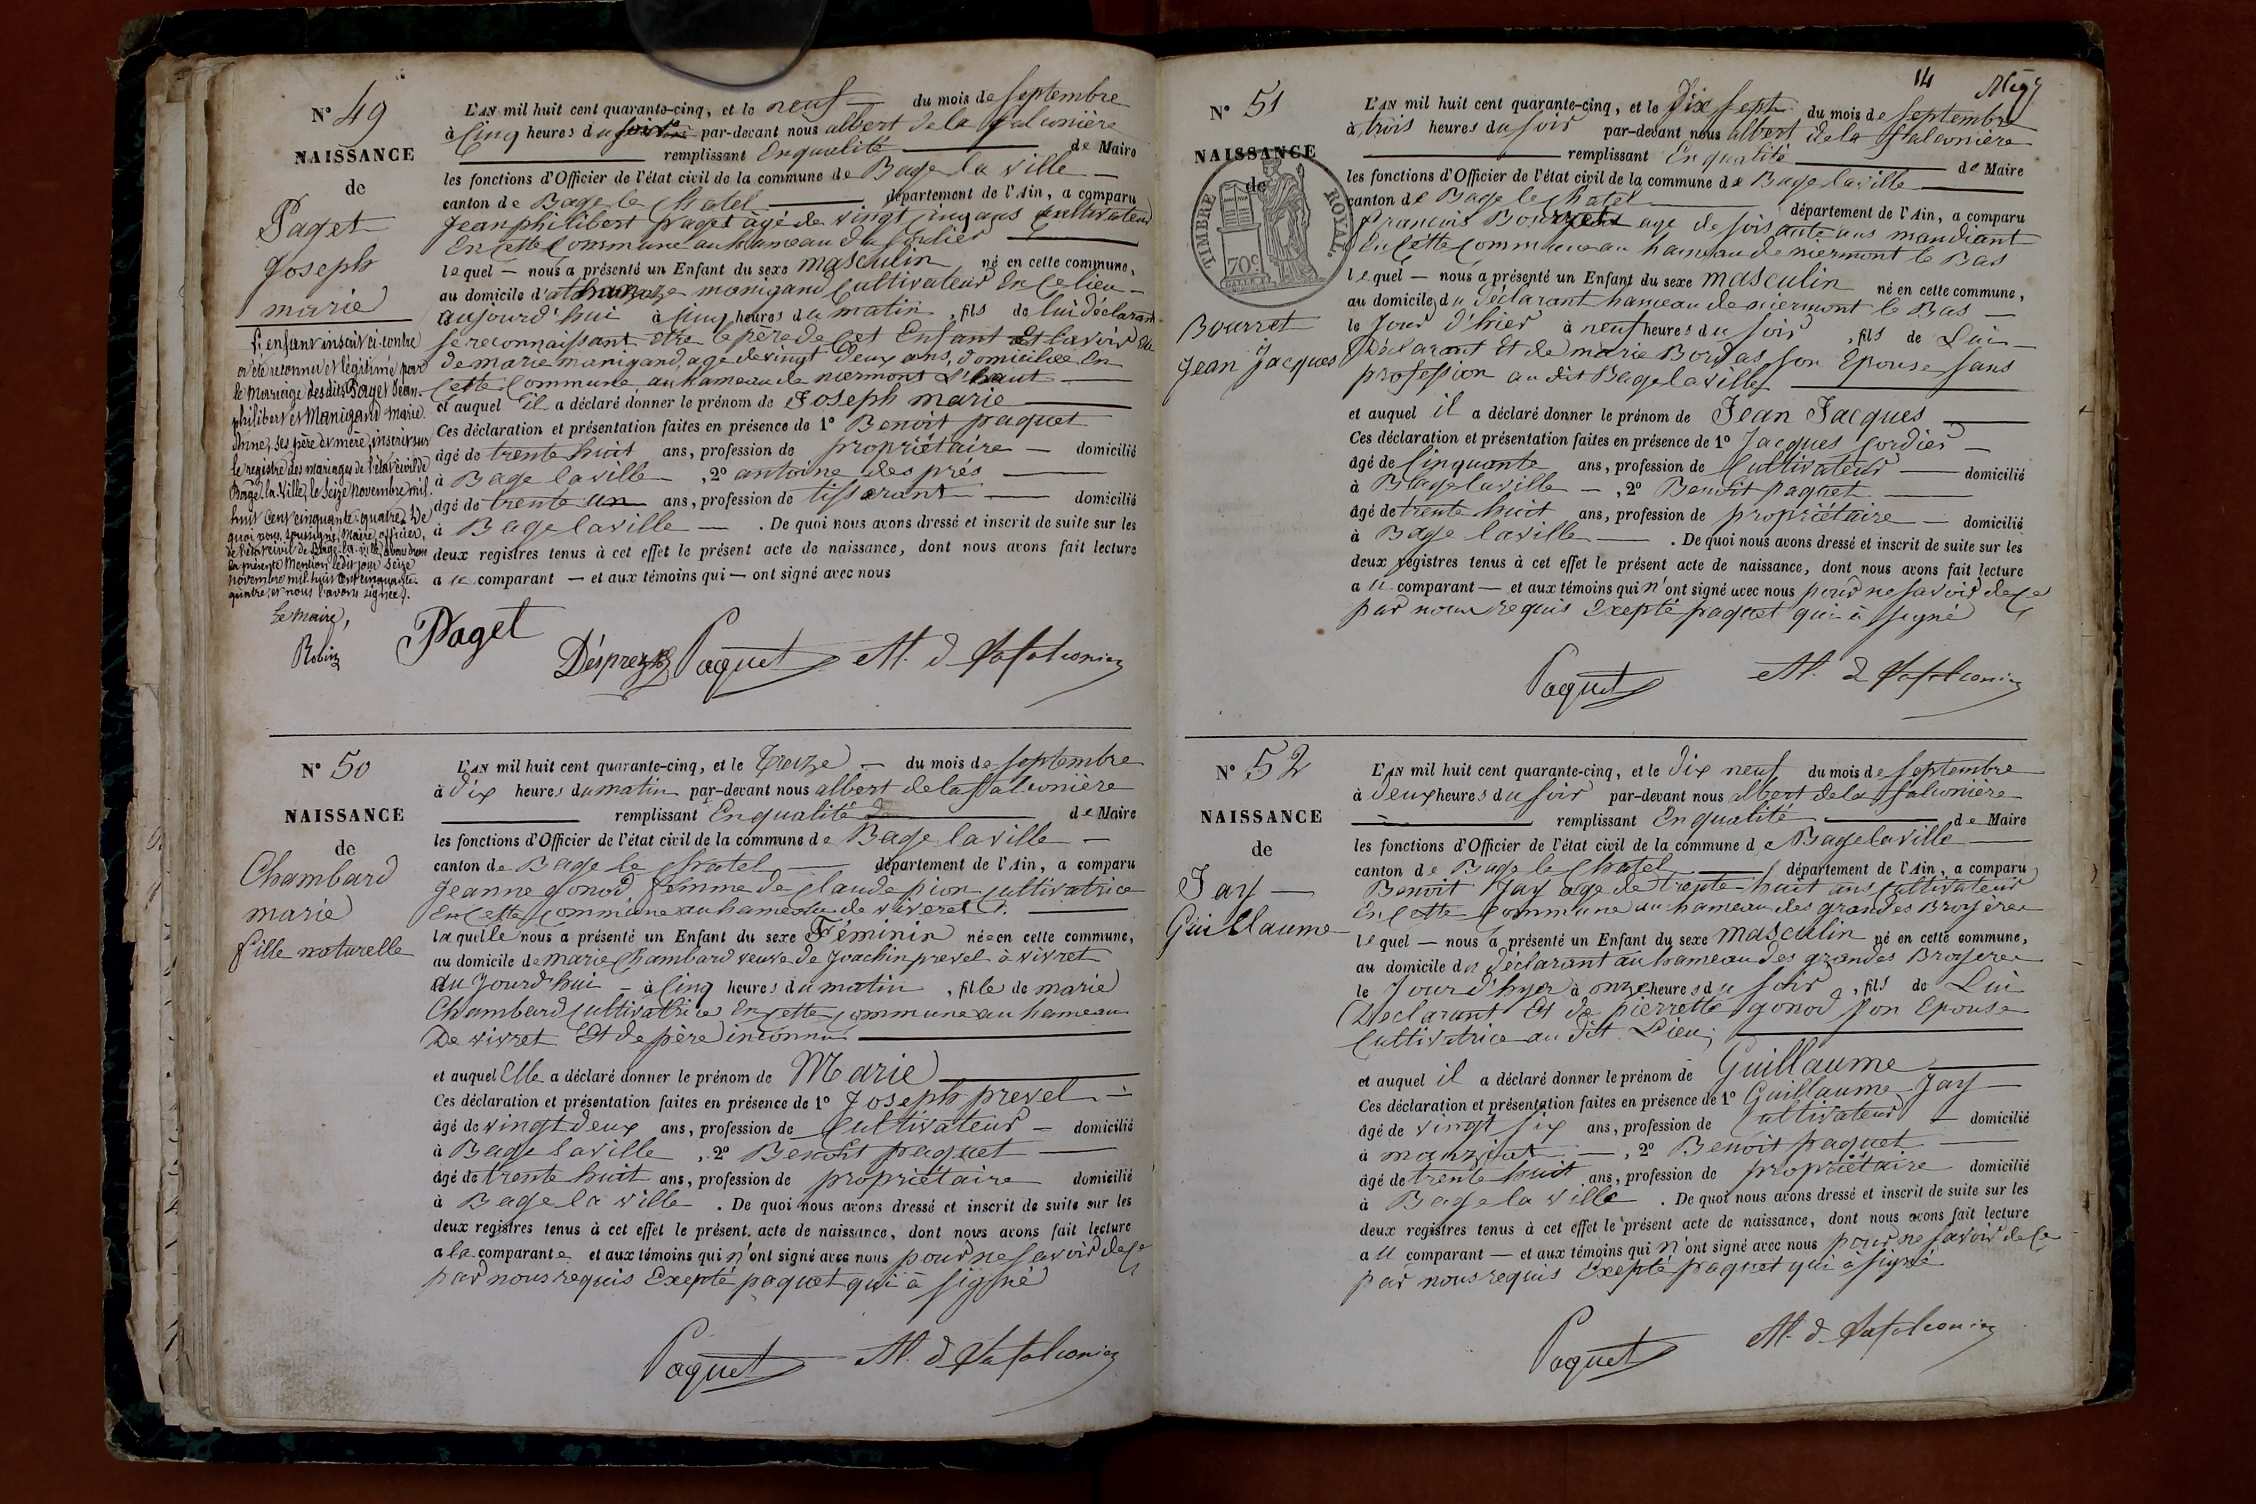 N° 49
NAISSANCE
de
Paget
Joseph
marie
L'enfant inscrit ci-contre
a été reconnu et légitimé par
le mariage des dits Paget Jean-
philibert et Manigand Marie
Anne, ses père et mère, inscrit sur
le registre des mariages de l'état civil de
Bagé-la-Ville, le seize novembre mil
huit cent cinquante-quatre. De
quoi nous, soussigné, Maire, officier
de l'état civil de Bagé-la-Ville, avons dressé
la présente mention ledit jour seize
novembre mil huit cent cinquante-
quatre, et nous l'avons signée.
Le Maire,
Robin
L'AN mil huit cent quarante-cinq, et le neuf — du mois de septembre
à Cinq heures du soir par-devant nous albert de la falconière
remplissant En qualité de Maire
les fonctions d'Officier de l'état civil de la commune de Bage la ville —
canton de Bage le Chatel — département de l'Ain, a comparu
Jean philibert paget âgé de vingt cinq ans Cultivateur
En cette Commune au hameau du
lequel — nous a présenté un Enfant du sexe masculin né en cette commune,
au domicile d' manigand Cultivateur En ce lieu —
aujourd'hui à Cinq heures du matin, fils de lui déclarant
se reconnaissant être le père de cet Enfant Et l'avoir Eu
de marie manigand, age de vingt deux ans, domiciliée En
Cette Commune au hameau de niermont L'haut —
et auquel il a déclaré donner le prénom de Joseph marie
Ces déclaration et présentation faites en présence de 1° Benoit paquet
âgé de trente huit ans, profession de propriétaire — domicilié
à Bage laville —, 2° antoine des prés —
âgé de trente un ans, profession de tisserant — domicilié
à Bage laville — . De quoi nous avons dressé et inscrit de suite sur les
deux registres tenus à cet effet le présent acte de naissance, dont nous avons fait lecture
a u comparant — et aux témoins qui — ont signé avec nous
Paget
Désprez Paquet Al. d Lafalconière
N° 50
NAISSANCE
de
Chambard
marie
fille naturelle
L'AN mil huit cent quarante-cinq, et le Treize — du mois de septembre
à dix heures du matin par-devant nous albert de la falconière
remplissant En qualité de Maire
les fonctions d'Officier de l'état civil de la commune de Bage la ville —
canton de Bage le Chatel — département de l'Ain, a comparu
Jeanne gonod femme de Claude pion cultivatrice
En cette Commune au hameau de viveret
laquelle nous a présenté un Enfant du sexe Féminin née en cette commune,
au domicile de marie Chambard veuve de Joachin prevel à vivret
au Jourd'hui — à Cinq heures du matin, fille de marie
Chambard Cultivatrice En cette commune au hameau
De vivret Et de père inconnu
et auquel Elle a déclaré donner le prénom de Marie
Ces déclaration et présentation faites en présence de 1° Joseph prevel —
âgé de vingt deux ans, profession de Cultivateur — domicilié
à Bage laville, 2° Benoit paquet —
âgé de trente huit ans, profession de propriétaire domicilié
à Bage la ville . De quoi nous avons dressé et inscrit de suite sur les
deux registres tenus à cet effet le présent acte de naissance, dont nous avons fait lecture
a la comparante et aux témoins qui n'ont signé avec nous pour ne savoir de ce
par nous requis Exepté paquet qui à signé
Paquet Al. d Lafalconière
14
N° 51
NAISSANCE
de
TIMBRE ROYAL.
70c
Bourret
Jean Jacques
L'AN mil huit cent quarante-cinq, et le Dix sept du mois de septembre
à trois heures du soir par-devant nous albert de la falconière
remplissant En qualité de Maire
les fonctions d'Officier de l'état civil de la commune de Bage laville
canton de Bage le Chatel — département de l'Ain, a comparu
François Bourret age de soisante ans mandiant
En cette Commune au hameau de niermont le Bas
lequel — nous a présenté un Enfant du sexe masculin né en cette commune,
au domicile du déclarant hameau de niermont le Bas —
le Jour d'hier à neuf heures du soir, fils de Lui —
Déclarant Et de marie Bordas son Epouse sans
profession au dit Bage laville
et auquel il a déclaré donner le prénom de Jean Jacques —
Ces déclaration et présentation faites en présence de 1° Jacques Cordier —
âgé de Cinquante ans, profession de Cultivateur — domicilié
à Bage laville —, 2° Benoit paquet —
âgé de trente huit ans, profession de propriétaire — domicilié
à Bage laville — . De quoi nous avons dressé et inscrit de suite sur les
deux registres tenus à cet effet le présent acte de naissance, dont nous avons fait lecture
a u comparant — et aux témoins qui n'ont signé avec nous pour ne savoir de ce
par nous requis Exepté paquet qui à signé
Paquet Al. d Lafalconière
N° 52
NAISSANCE
de
Jay —
Guillaume
L'AN mil huit cent quarante-cinq, et le Dix neuf du mois de septembre
à Deux heures du soir par-devant nous albert de la falconière
remplissant En qualité de Maire
les fonctions d'Officier de l'état civil de la commune de Bage laville
canton de Bage le Chatel — département de l'Ain, a comparu
Benoit Jay age de trente huit ans Cultivateur
En cette Commune au hameau des grandes Broyères
lequel — nous a présenté un Enfant du sexe masculin né en cette commune,
au domicile du déclarant au hameau des grandes Broyeres
le Jour d'hyer à onze heures du soir, fils de Lui
Déclarant Et de pierrette gonod son Epouse
Cultivatrice au dit Lieu;
et auquel il a déclaré donner le prénom de Guillaume
Ces déclaration et présentation faites en présence de 1° Guillaume Jay —
âgé de vingt six ans, profession de Cultivateur — domicilié
à manziat —, 2° Benoit paquet
âgé de trente huit ans, profession de propriétaire domicilié
à Bage la ville . De quoi nous avons dressé et inscrit de suite sur les
deux registres tenus à cet effet le présent acte de naissance, dont nous avons fait lecture
a u comparant — et aux témoins qui n'ont signé avec nous pour ne savoir de ce
par nous requis Exepté paquet qui à signé
Paquet Al. d Lafalconière